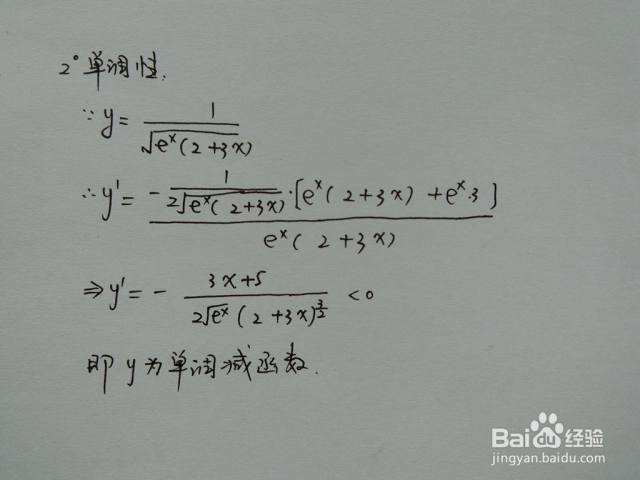 2° 单调性.
∵ y = 1/√(eˣ(2+3x))
∴ y' = -1/(2√(eˣ(2+3x)))·[eˣ(2+3x)+eˣ·3] / eˣ(2+3x)
⇒ y' = - (3x+5)/(2√eˣ (2+3x)^(3/2)) <0
即 y 为单调减函数.
Baidu 经验
jingyan.baidu.com